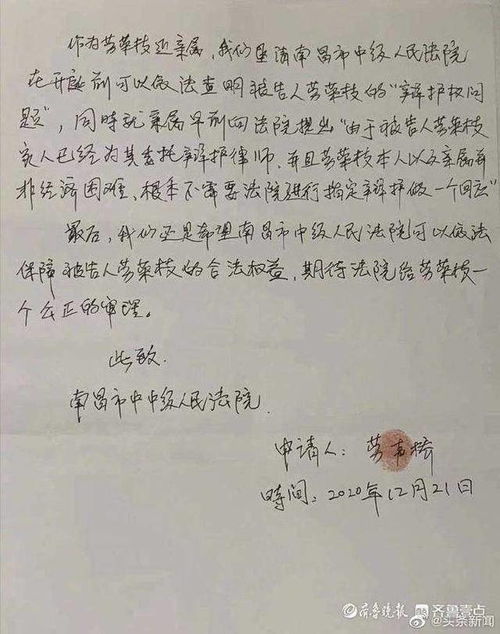 作为劳荣枝近亲属，我们恳请南昌市中级人民法院
在开庭前可以依法查明被告人劳荣枝的“辩护权问
题”，同时就亲属早前向法院提出“由于被告人劳荣枝
家人已经为其委托辩护律师，并且劳荣枝本人以及亲属并
非经济困难、根本不需要法院进行指定辩护做一个回应”
最后，我们还是希望南昌市中级人民法院可以依法
保障被告人劳荣枝的合法权益，期待法院给劳荣枝一
个公正的审理。
此致
南昌市中中级人民法院
申请人：劳声桥
时间：2020年12月21日
齐鲁晚报 齐鲁壹点
@头条新闻